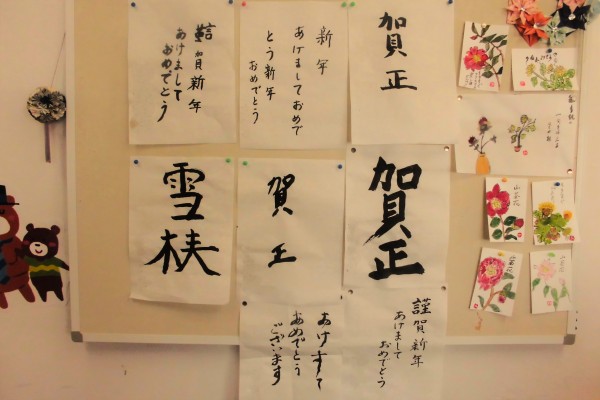 謹賀新年
あけまして
おめでとう
新年
あけましておめで
とう新年
おめでとう
賀正
雪枎
賀正
賀正
あけまして
おめでとう
ございます
謹賀新年
あけまして
おめでとう